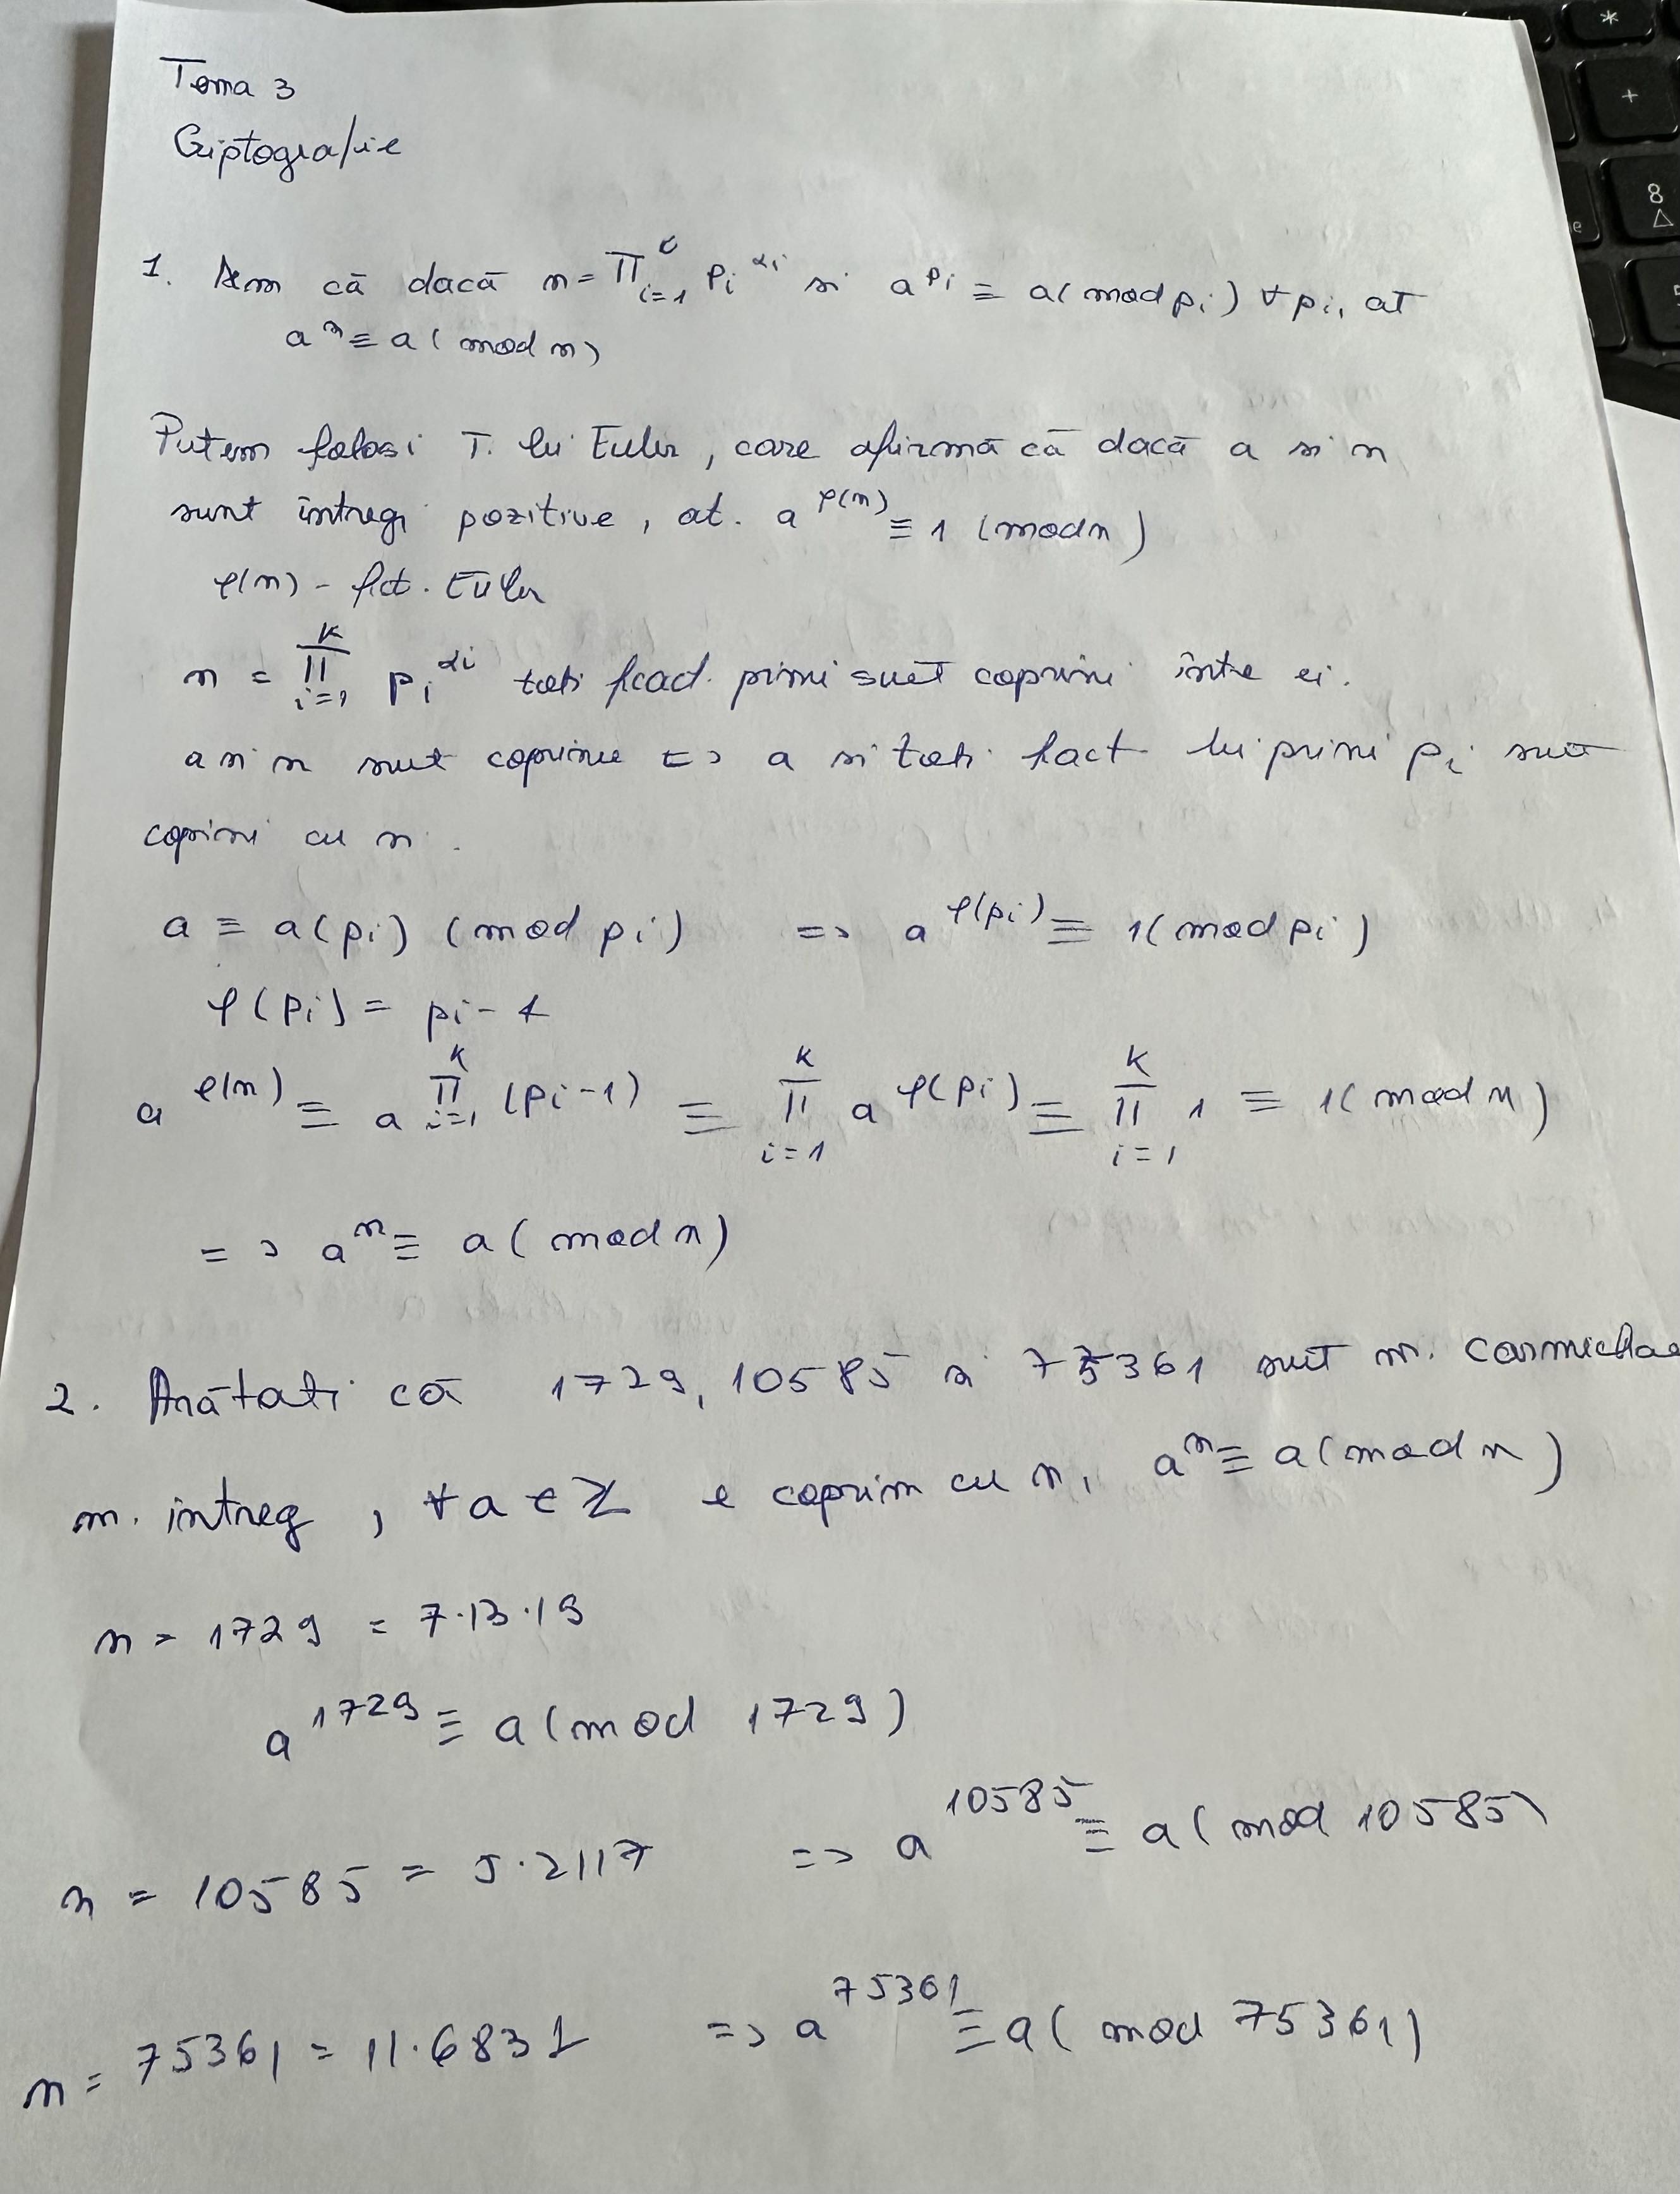 Tema 3
Criptografie
1. Dem că dacă n = ∏_{i=1}^{k} p_i^{αi} si a^{p_i} ≡ a (mod p_i) ∀ p_i, at
a^n ≡ a (mod n)
Putem folosi T. lui Euler, care afirmă că dacă a si n
sunt întregi pozitive, at. a^{φ(n)} ≡ 1 (mod n)
φ(n) - fct. Euler
n = ∏_{i=1}^{k} p_i^{αi} toti primi sunt coprimi între ei.
a si n sunt coprime <=> a si toti fact lui primi p_i sunt
coprimi cu n.
a ≡ a(p_i) (mod p_i) => a^{φ(p_i)} ≡ 1 (mod p_i)
φ(p_i) = p_i - 1
a^{φ(n)} ≡ a^{∏_{i=1}^{k} (p_i - 1)} ≡ ∏_{i=1}^{k} a^{φ(p_i)} ≡ ∏_{i=1}^{k} 1 ≡ 1 (mod n)
=> a^n ≡ a (mod n)
2. Arătati că 1729, 10585 si 75361 sunt n. Carmichae
n. intreg, ∀ a ∈ Z e coprim cu n, a^n ≡ a (mod n)
n = 1729 = 7·13·19
a^{1729} ≡ a (mod 1729)
n = 10585 = 5·2117 => a^{10585} ≡ a (mod 10585)
n = 75361 = 11·6831 => a^{75361} ≡ a (mod 75361)
*
+
8
e